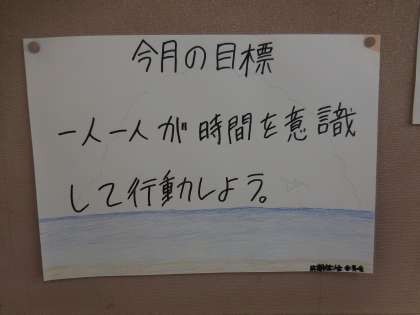 今月の目標
一人一人が時間を意識
して行動しよう。